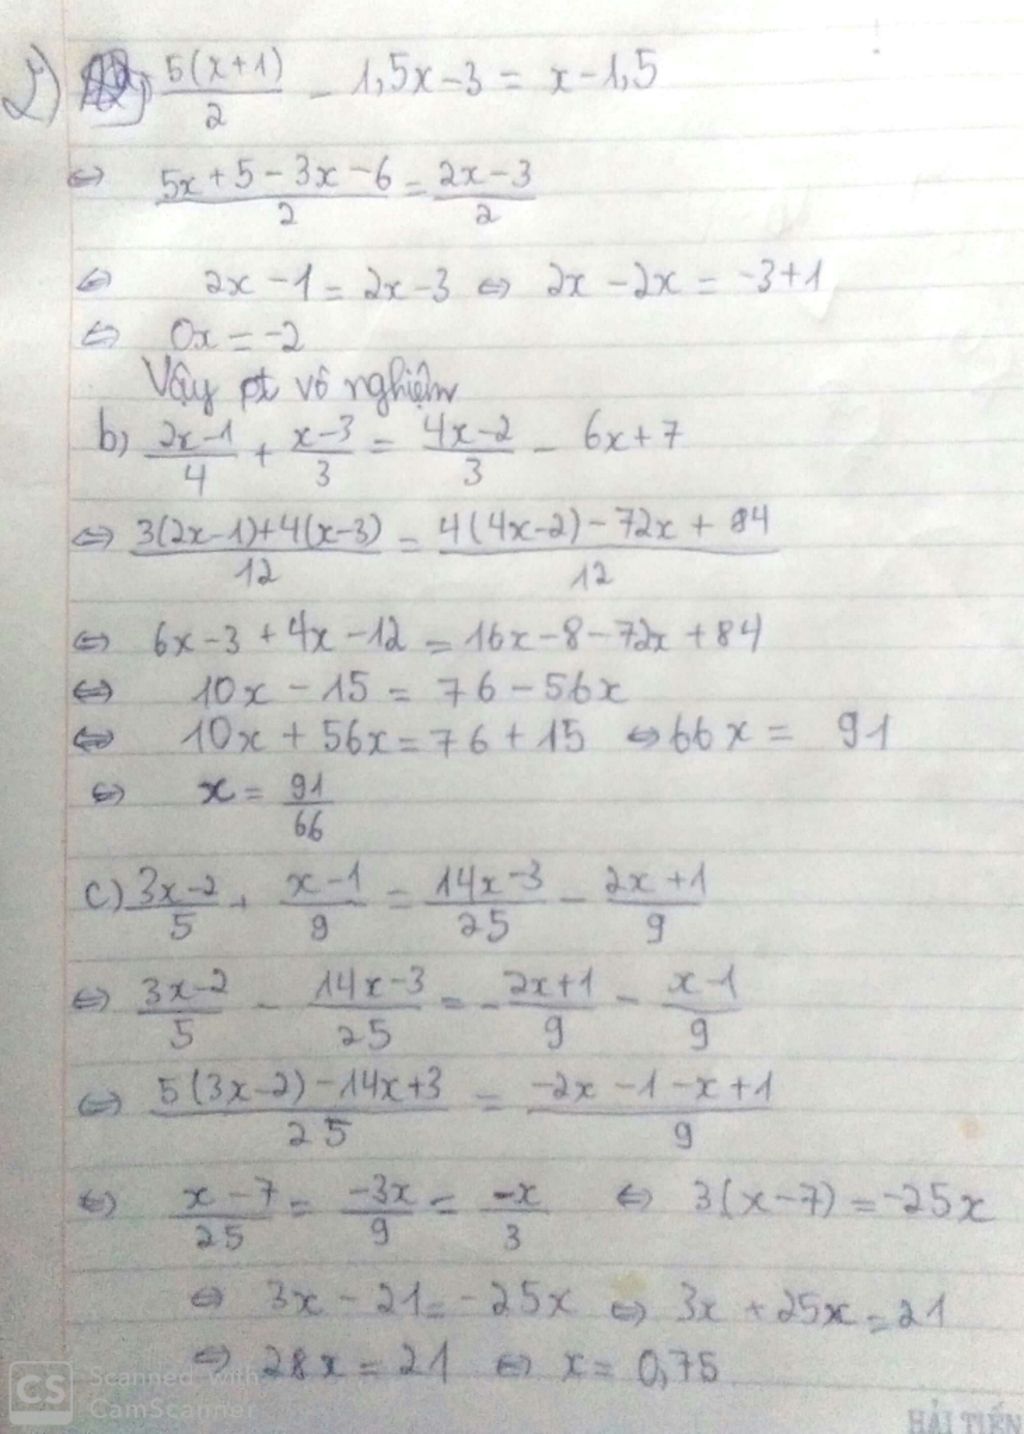 2) a) 5(x+1)/2 - 1,5x-3 = x-1,5
⇔ (5x+5-3x-6)/2 = (2x-3)/2
⇔ 2x-1 = 2x-3 ⇔ 2x-2x = -3+1
⇔ 0x = -2
Vậy pt vô nghiệm
b) (2x-1)/4 + (x-3)/3 = (4x-2)/3 - 6x+7
⇔ (3(2x-1)+4(x-3))/12 = (4(4x-2)-72x+84)/12
⇔ 6x-3+4x-12 = 16x-8-72x+84
⇔ 10x-15 = 76-56x
⇔ 10x+56x = 76+15 ⇔ 66x = 91
⇔ x = 91/66
c) (3x-2)/5 + (x-1)/9 = (14x-3)/25 - (2x+1)/9
⇔ (3x-2)/5 - (14x-3)/25 = -(2x+1)/9 - (x-1)/9
⇔ (5(3x-2)-14x+3)/25 = (-2x-1-x+1)/9
⇔ (x-7)/25 = -3x/9 = -x/3 ⇔ 3(x-7) = -25x
⇔ 3x-21 = -25x ⇔ 3x+25x = 21
⇔ 28x = 21 ⇔ x = 0,75
CS Scanned with
CamScanner
HẢI TIẾN